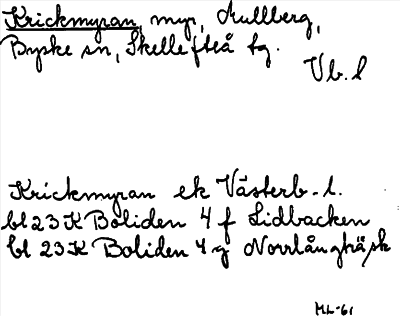 Krickmyran, myr, Kullberg,
Byske sn, Skellefteå tg.
Vb. l
Krickmyran ek Västerb. l.
bl 23 K Boliden 4 f Lidbacken
bl 23 K Boliden 4 g Norrlångträsk
ML-61